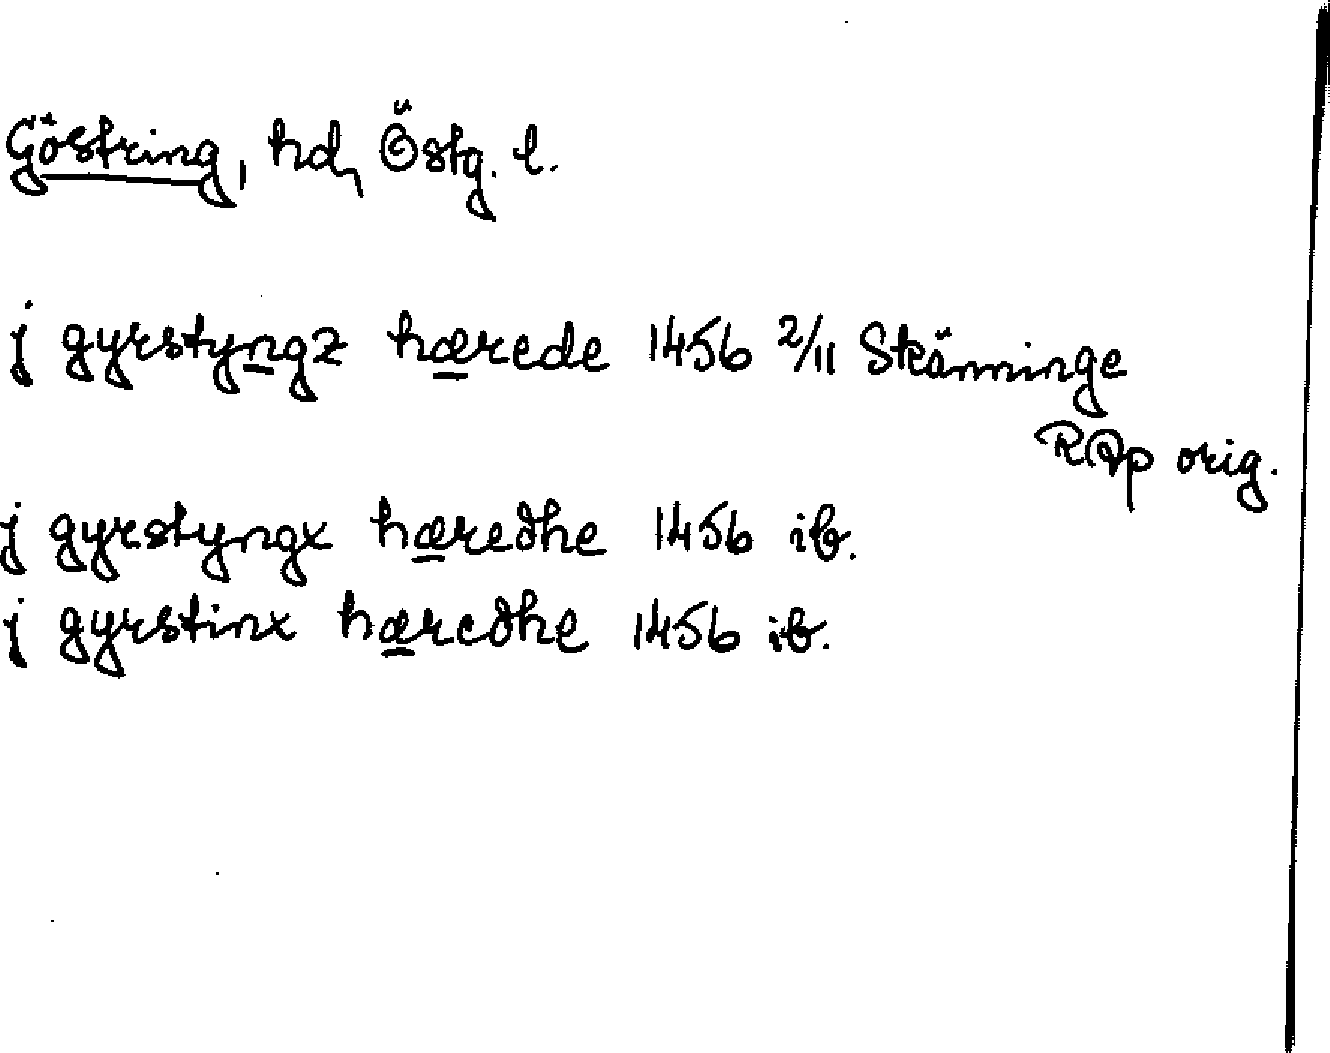 Göstring, hd, Östg. l.
j gyrstyngz hærede 1456 2/11 Skänninge
RAp orig.
j gyrstyngx hæredhe 1456 ib.
j gyrstinx hæredhe 1456 ib.